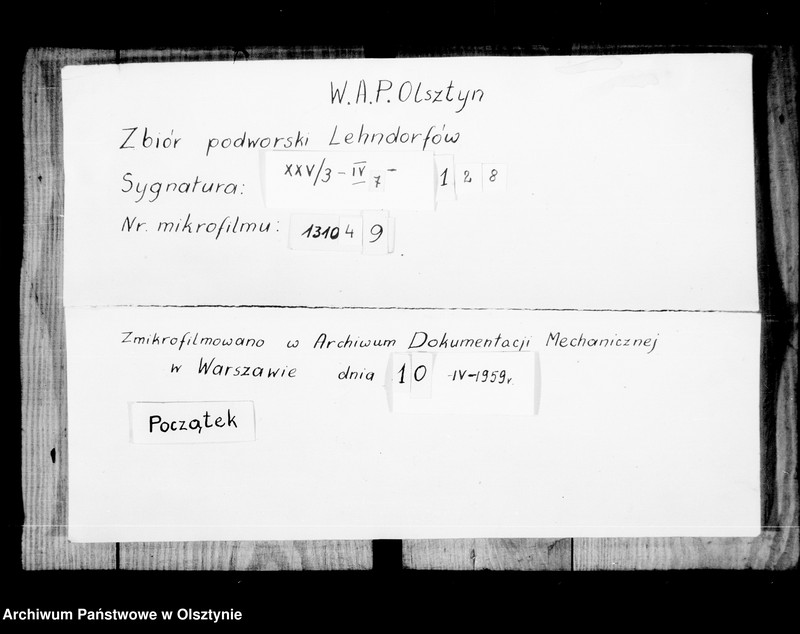 W.A.P. Olsztyn
Zbiór podworski Lehndorfów
Sygnatura: XXV/3 - IV 7 - 128
Nr. mikrofilmu: 131049
Zmikrofilmowano w Archiwum Dokumentacji Mechanicznej
w Warszawie dnia 10 -IV-1959r.
Początek
Archiwum Państwowe w Olsztynie